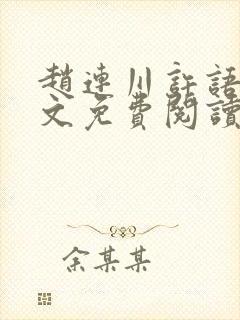 趙連川許語
文免費閱讀
余某某